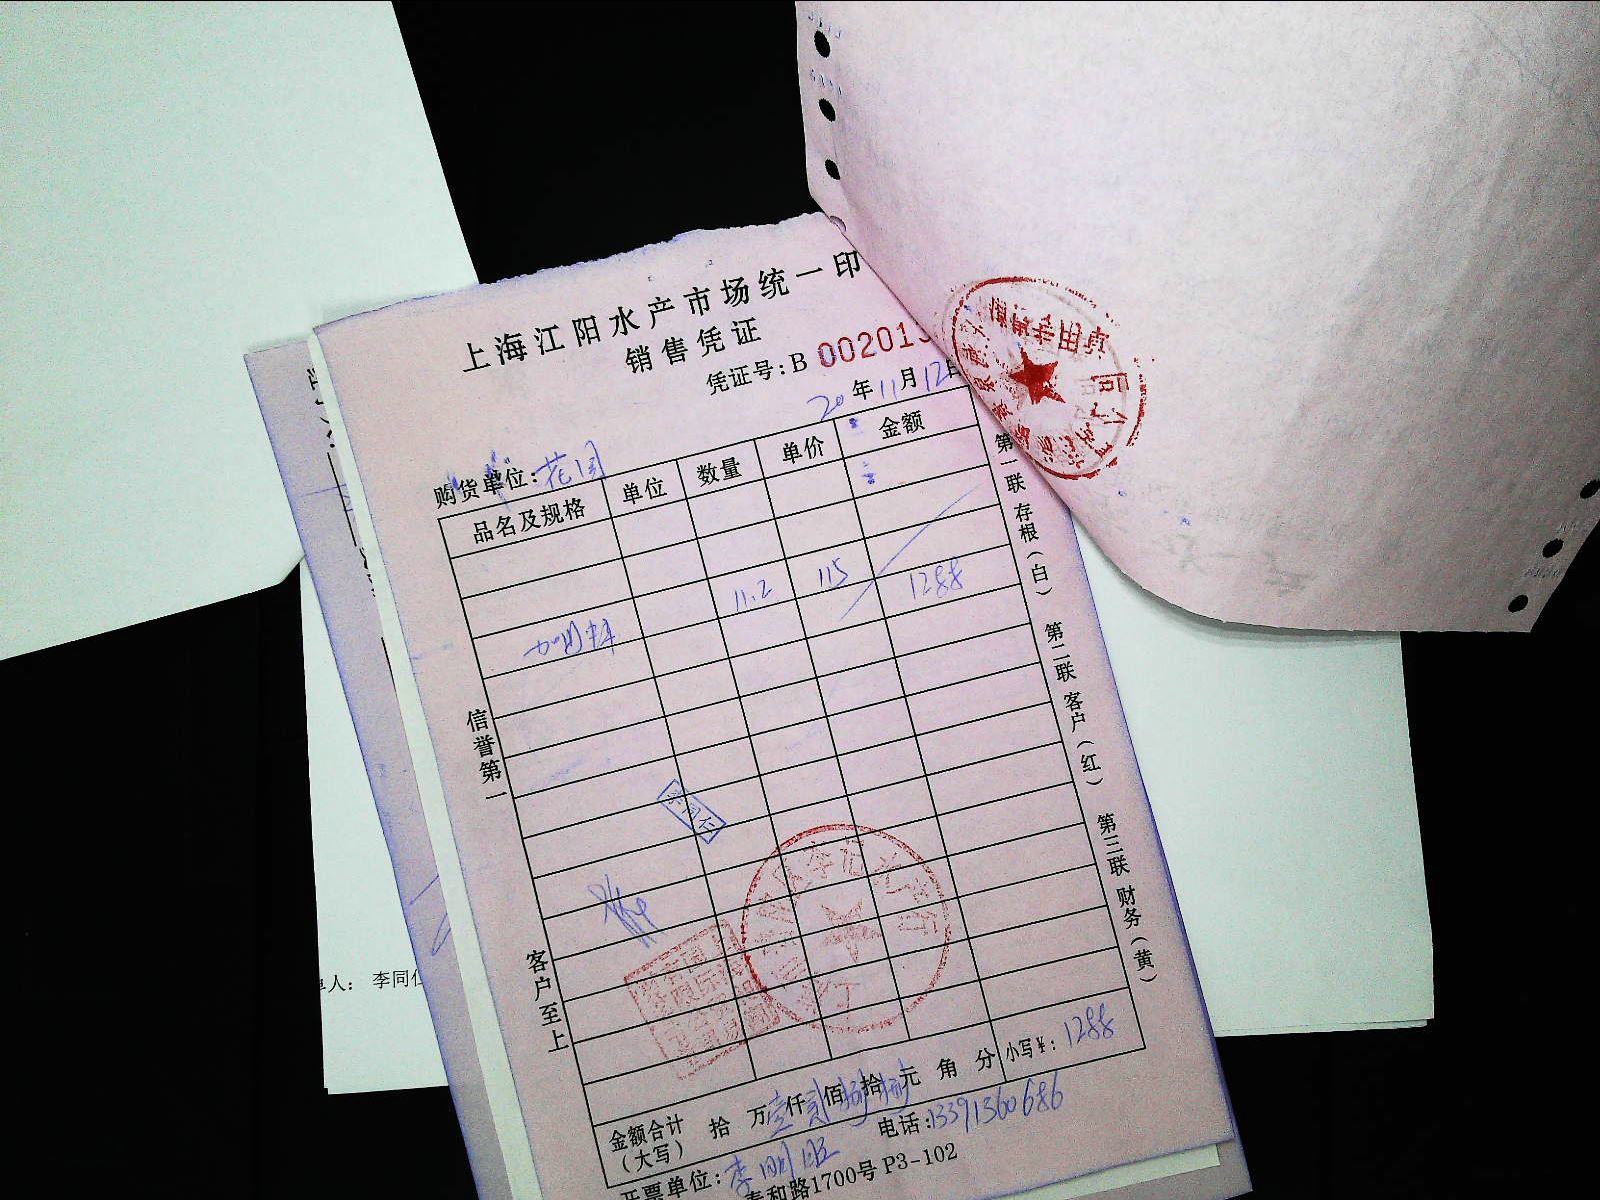 上海江阳水产市场统一印
销售凭证
凭证号:B 00201
20 年 11 月 12 日
购货单位: 花园
品名及规格 单位 数量 单价 金额
11.2 115 1288
信誉第一
客户至上
李同仁
第一联 存根(白)
第二联 客户(红)
第三联 财务(黄)
金额合计(大写) 拾 万 壹 仟 贰 佰 捌 拾 捌 元 角 分 小写¥: 1288
开票单位: 李明旺 电话: 13391360686
泰和路1700号 P3-102
单人: 李同仁